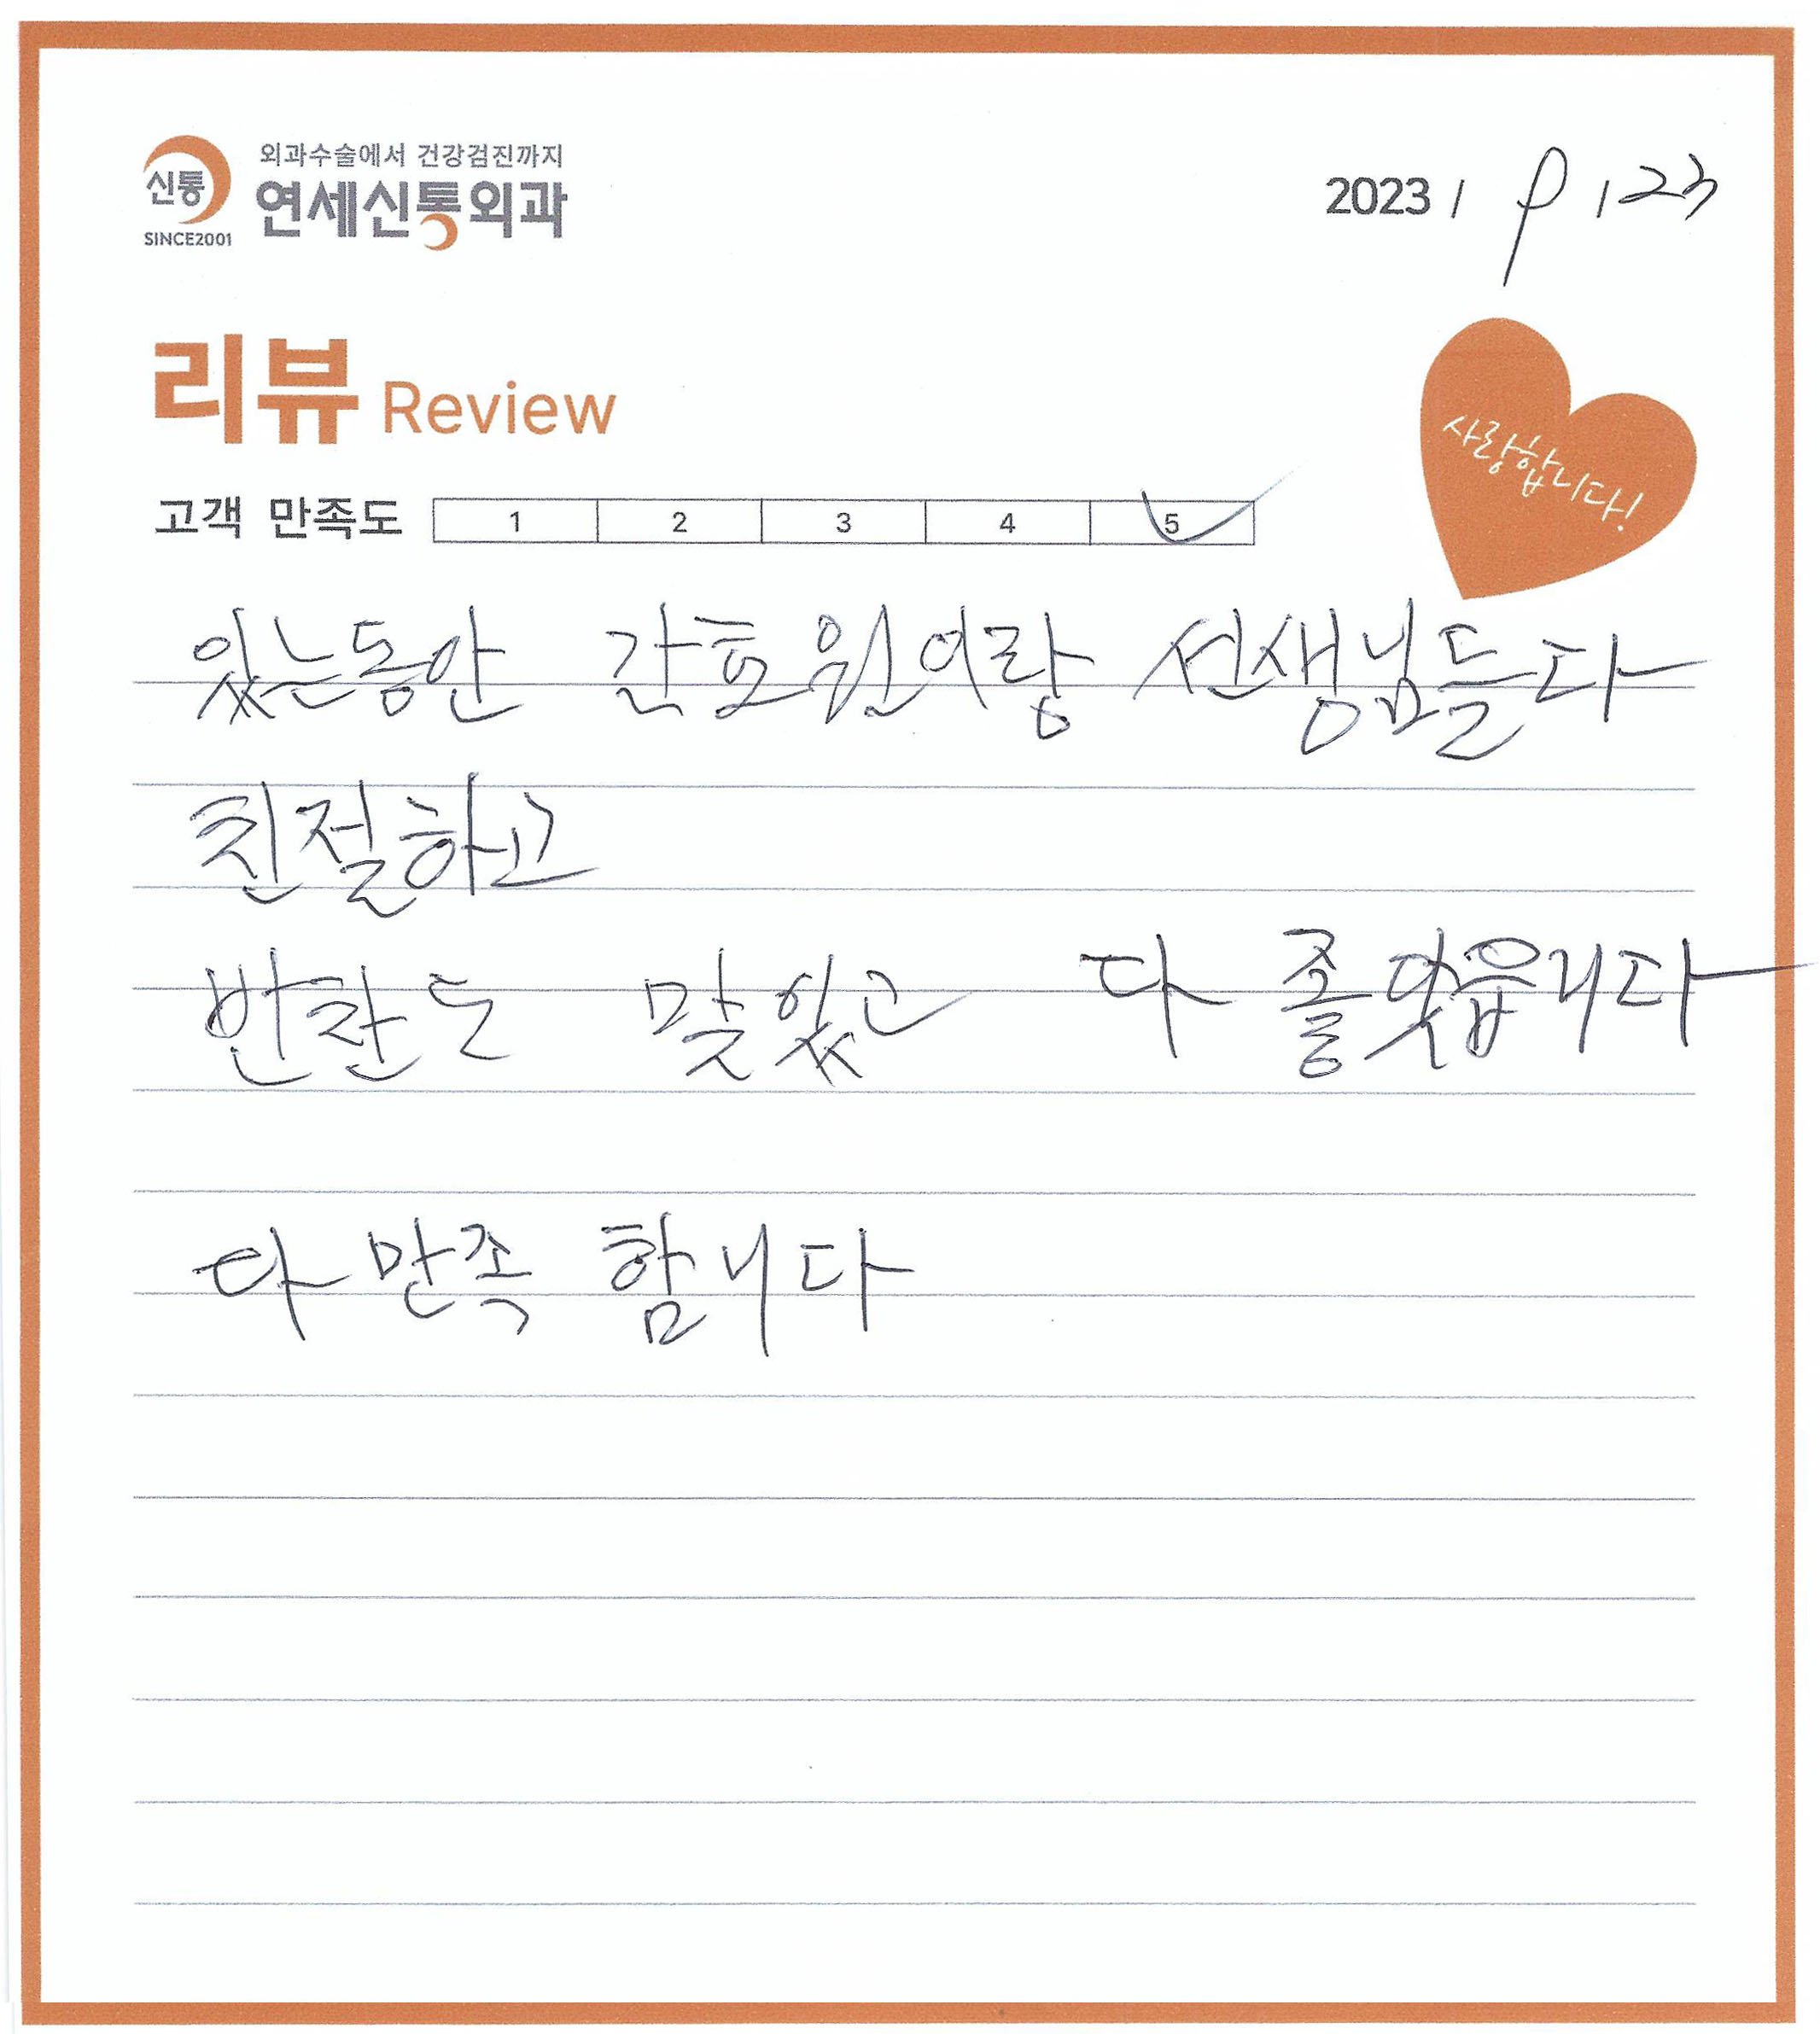 외과수술에서 건강검진까지
신통 연세신통외과
SINCE2001
2023 / 9 / 23
리뷰 Review
사랑합니다!
고객 만족도 1 2 3 4 5
있는동안 간호원이랑 선생님들다
친절하고
반찬도 맞있고 다 좋았읍니다
다 만족 합니다